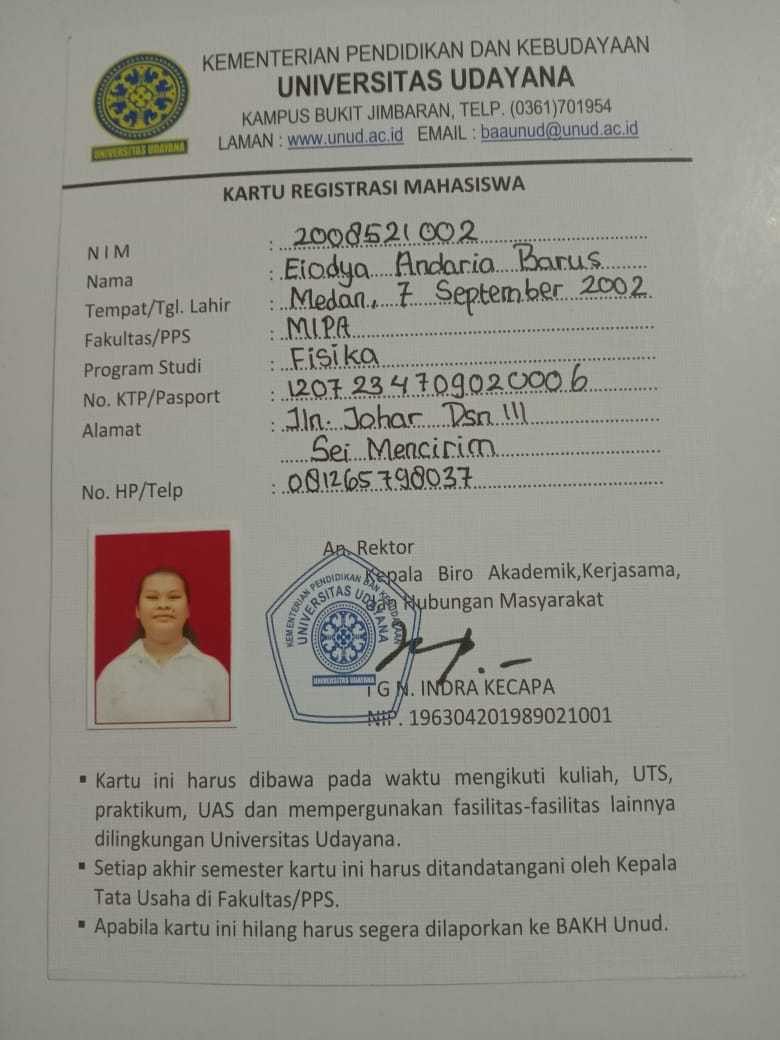 UNIVERSITAS UDAYANA
KEMENTERIAN PENDIDIKAN DAN KEBUDAYAAN
UNIVERSITAS UDAYANA
KAMPUS BUKIT JIMBARAN, TELP. (0361)701954
LAMAN : www.unud.ac.id EMAIL : baaunud@unud.ac.id
KARTU REGISTRASI MAHASISWA
N I M : 2008521002
Nama : Eiodya Andaria Barus
Tempat/Tgl. Lahir : Medan, 7 September 2002
Fakultas/PPS : MIPA
Program Studi : Fisika
No. KTP/Pasport : 1207234709020006
Alamat : Jln. Johar Dsn III
Sei Mencirim
No. HP/Telp : 081265798037
An. Rektor
Kepala Biro Akademik,Kerjasama,
dan Hubungan Masyarakat
KEMENTERIAN PENDIDIKAN DAN KEBUDAYAAN
UNIVERSITAS UDAYANA
UNIVERSITAS UDAYANA
I G N. INDRA KECAPA
NIP. 196304201989021001
▪ Kartu ini harus dibawa pada waktu mengikuti kuliah, UTS,
praktikum, UAS dan mempergunakan fasilitas-fasilitas lainnya
dilingkungan Universitas Udayana.
▪ Setiap akhir semester kartu ini harus ditandatangani oleh Kepala
Tata Usaha di Fakultas/PPS.
▪ Apabila kartu ini hilang harus segera dilaporkan ke BAKH Unud.